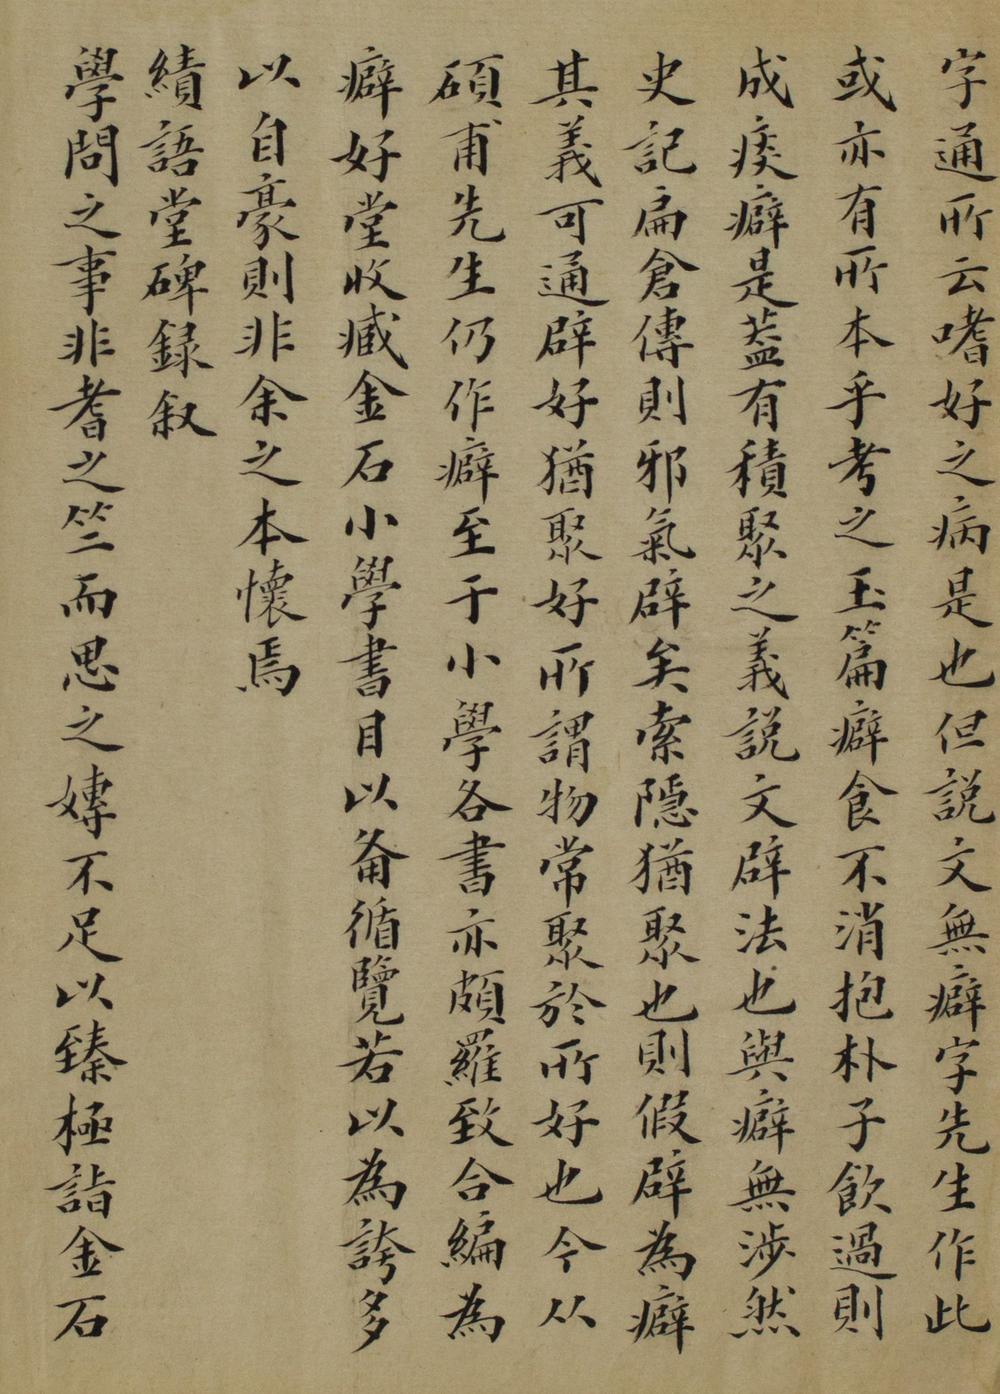 字通所云嗜好之病是也但説文無癖字先生作此
或亦有所本乎考之玉篇癖食不消抱朴子飲過則
成痰癖是葢有積聚之義説文辟法也與癖無涉然
史記扁倉傳則邪氣辟矣索隱猶聚也則假辟為癖
其義可通辟好猶聚好所謂物常聚於所好也今从
碩甫先生仍作癖至于小學各書亦頗羅致合編為
癖好堂收臧金石小學書目以備循覽若以為誇多
以自豪則非余之本懷焉
績語堂碑録叙
學問之事非耆之竺而思之嫥不足以臻極詣金石